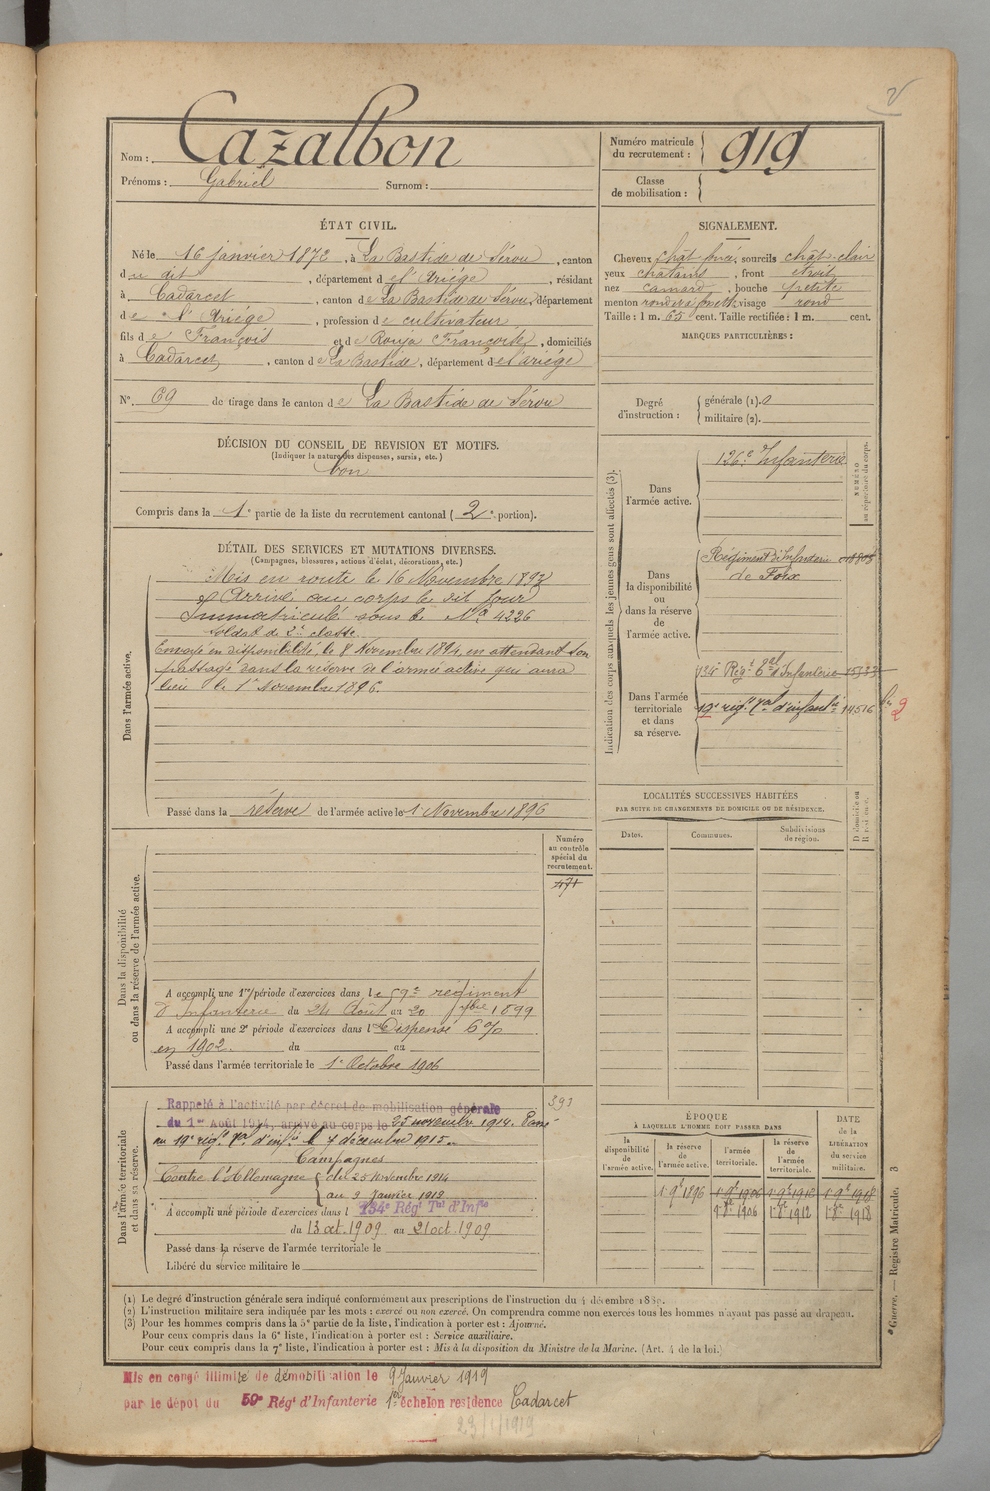 Nom : Cazalbon
Prénoms : Gabriel Surnom :
Numéro matricule du recrutement : 919
Classe de mobilisation :
ÉTAT CIVIL.
Né le 16 janvier 1872, à La Bastide de Sérou, canton
du dit, département de l'Ariége, résidant
à Cadarcet, canton de La Bastide de Sérou, département
de l'Ariége, profession de cultivateur
fils de François et de Rouja Françoise, domiciliés
à Cadarcet, canton de La Bastide, département de l'ariége
N° 69 de tirage dans le canton de La Bastide de Sérou
DÉCISION DU CONSEIL DE REVISION ET MOTIFS.
(Indiquer la nature des dispenses, sursis, etc.)
bon
Compris dans la 1e partie de la liste du recrutement cantonal (2e portion).
SIGNALEMENT.
Cheveux chât foncé, sourcils chât-clair
yeux chatains, front étroit
nez camard, bouche petite
menton rond, visage rond
Taille : 1 m. 65 cent. Taille rectifiée : 1 m. cent.
MARQUES PARTICULIÈRES :
Degré d'instruction : générale (1). 0
militaire (2).
DÉTAIL DES SERVICES ET MUTATIONS DIVERSES.
(Campagnes, blessures, actions d'éclat, décorations, etc.)
Dans l'armée active.
Mis en route le 16 Novembre 1893
& Arrivé au corps le dit Jour
Immatriculé sous le No 4226
Soldat de 2e classe.
Envoyé en disponibilité, le 8 Novembre 1894, en attendant son
passage dans la réserve de l'armée active qui aura
lieu le 1r Novembre 1896.
Passé dans la réserve de l'armée active le 1r Novembre 1896
Indication des corps auxquels les jeunes gens sont affectés (3).
NUMÉRO au répertoire du corps.
Dans l'armée active.
126e Infanterie
Dans la disponibilité ou dans la réserve de l'armée active.
Régiment d'Infanterie
de Foix
Dans l'armée territoriale et dans sa réserve.
134e Régt Tal d'Infanterie
19e régt Tal d'infantie 14516
LOCALITÉS SUCCESSIVES HABITÉES
PAR SUITE DE CHANGEMENTS DE DOMICILE OU DE RÉSIDENCE.
Dates. Communes. Subdivisions de région. Domicile ou Résidence.
Dans la disponibilité ou dans la réserve de l'armée active.
Numéro au contrôle spécial du recrutement.
471
A accompli une 1re période d'exercices dans le 59e regiment
d'Infanterie du 24 Août au 20 7bre 1899
A accompli une 2e période d'exercices dans l Dispensé 6%
en 1902. du au
Passé dans l'armée territoriale le 1r Octobre 1906
Dans l'armée territoriale et dans sa réserve.
393
Rappelé à l'activité par décret de mobilisation générale
du 1er Août 1914, arrivé au corps le 25 novembre 1914. Passé
au 19e régt Tal d'infie le 7 décembre 1915.
Campagnes
Contre l'Allemagne du 25 Novembre 1914
au 9 Janvier 1919
A accompli une période d'exercices dans l 134e Régt Tal d'Infie
du 13 oct. 1909 au 21 oct. 1909
Passé dans la réserve de l'armée territoriale le
Libéré du service militaire le
ÉPOQUE
À LAQUELLE L'HOMME DOIT PASSER DANS
la disponibilité de l'armée active. la réserve de l'armée active. l'armée territoriale. la réserve de l'armée territoriale.
DATE de la LIBÉRATION du service militaire.
1r 9e 1896 1r 9e 1906 1r 9e 1912 1r 9e 1918
1r 8e 1906 1r 8e 1912 1r 8e 1918
(1) Le degré d'instruction générale sera indiqué conformément aux prescriptions de l'instruction du 4 décembre 1889.
(2) L'instruction militaire sera indiquée par les mots : exercé ou non exercé. On comprendra comme non exercés tous les hommes n'ayant pas passé au drapeau.
(3) Pour les hommes compris dans la 5e partie de la liste, l'indication à porter est : Ajourné.
Pour ceux compris dans la 6e liste, l'indication à porter est : Service auxiliaire.
Pour ceux compris dans la 7e liste, l'indication à porter est : Mis à la disposition du Ministre de la Marine. (Art. 4 de la loi.)
Guerre. — Registre Matricule. 3
Mis en congé illimité de démobilisation le 9 Janvier 1919
par le dépot du 59e Régt d'Infanterie 1er échelon residence Cadarcet
23/1/1919